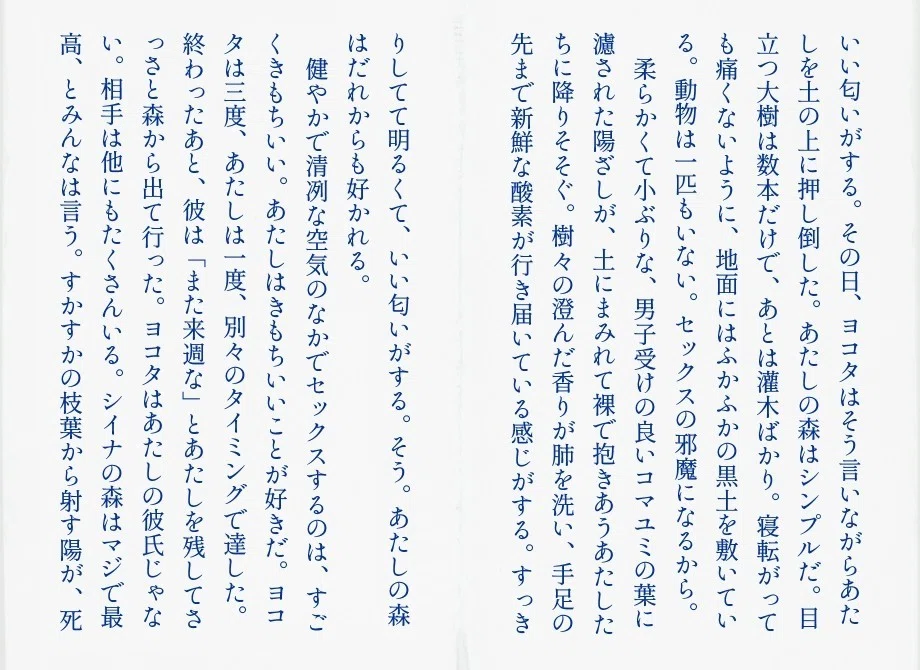 いい匂いがする。その日、ヨコタはそう言いながらあた
しを土の上に押し倒した。あたしの森はシンプルだ。目
立つ大樹は数本だけで、あとは灌木ばかり。寝転がって
も痛くないように、地面にはふかふかの黒土を敷いてい
る。動物は一匹もいない。セックスの邪魔になるから。
柔らかくて小ぶりな、男子受けの良いコマユミの葉に
濾された陽ざしが、土にまみれて裸で抱きあうあたした
ちに降りそそぐ。樹々の澄んだ香りが肺を洗い、手足の
先まで新鮮な酸素が行き届いている感じがする。すっき
りしてて明るくて、いい匂いがする。そう。あたしの森
はだれからも好かれる。
健やかで清冽な空気のなかでセックスするのは、すご
くきもちいい。あたしはきもちいいことが好きだ。ヨコ
タは三度、あたしは一度、別々のタイミングで達した。
終わったあと、彼は「また来週な」とあたしを残してさ
っさと森から出て行った。ヨコタはあたしの彼氏じゃな
い。相手は他にもたくさんいる。シイナの森はマジで最
高、とみんなは言う。すかすかの枝葉から射す陽が、死